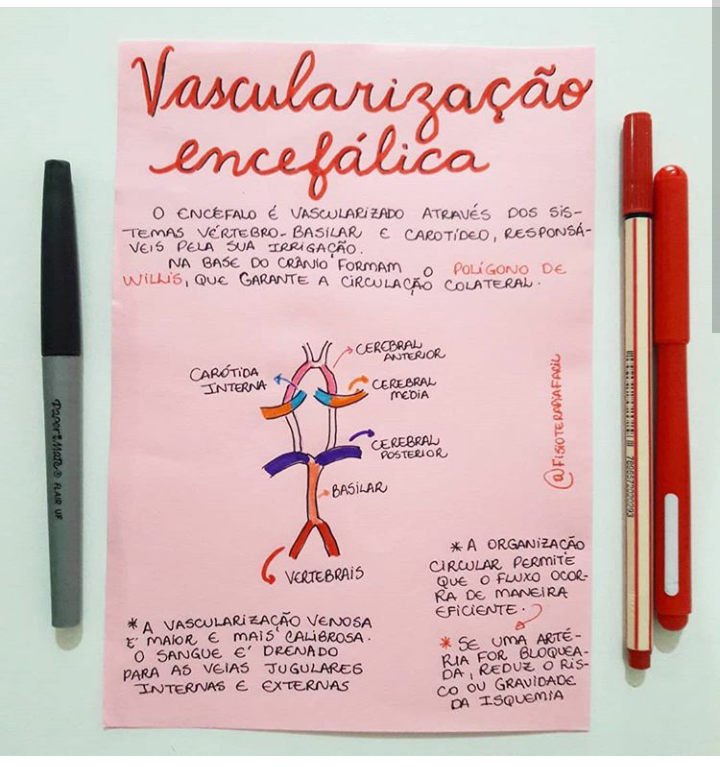 Vascularização
encefálica
O ENCÉFALO É VASCULARIZADO ATRAVÉS DOS SIS-
TEMAS VÉRTEBRO-BASILAR E CAROTÍDEO, RESPONSÁ-
VEIS PELA SUA IRRIGAÇÃO.
NA BASE DO CRÂNIO FORMAM O POLÍGONO DE
WILLIS, QUE GARANTE A CIRCULAÇÃO COLATERAL.
CEREBRAL
ANTERIOR
CARÓTIDA
INTERNA
CEREBRAL
MÉDIA
CEREBRAL
POSTERIOR
BASILAR
VERTEBRAIS
@FISIOTERAPIAFACIL
* A ORGANIZAÇÃO
CIRCULAR PERMITE
QUE O FLUXO OCOR-
RA DE MANEIRA
EFICIENTE.
* SE UMA ARTÉ-
RIA FOR BLOQUEA-
DA, REDUZ O RIS-
CO OU GRAVIDADE
DA ISQUEMIA
* A VASCULARIZAÇÃO VENOSA
É MAIOR E MAIS CALIBROSA.
O SANGUE É DRENADO
PARA AS VEIAS JUGULARES
INTERNAS E EXTERNAS
PaperMate FLAIR UF